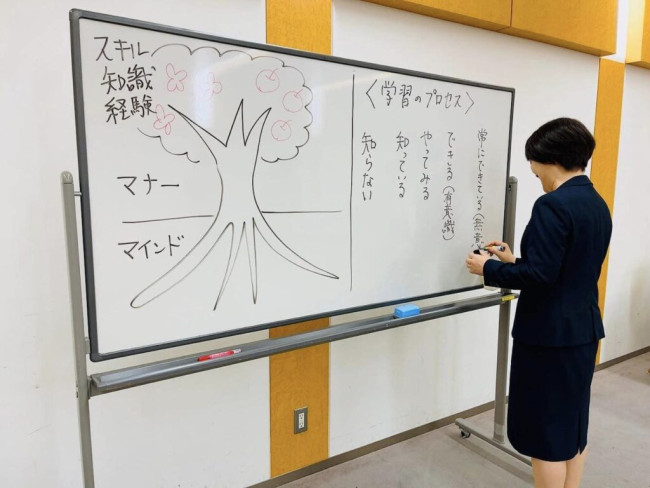 スキル
知識
経験
マナー
マインド
〈学習のプロセス〉
常にできている(無意
できる(有意識)
やってみる
知っている
知らない